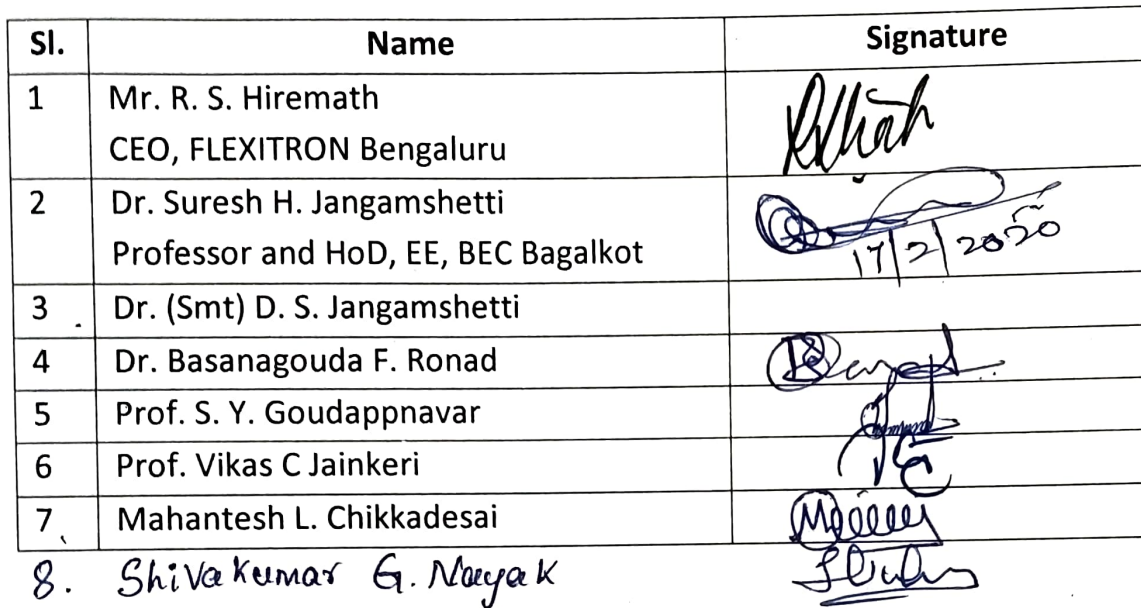 Sl. Name Signature
1 Mr. R. S. Hiremath
CEO, FLEXITRON Bengaluru
2 Dr. Suresh H. Jangamshetti
Professor and HoD, EE, BEC Bagalkot
17/2/2020
3 Dr. (Smt) D. S. Jangamshetti
4 Dr. Basanagouda F. Ronad
5 Prof. S. Y. Goudappnavar
6 Prof. Vikas C Jainkeri
7 Mahantesh L. Chikkadesai
8. Shivakumar G. Nayak